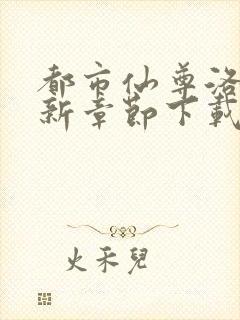 都市仙尊洛
新章節下載
火禾兒